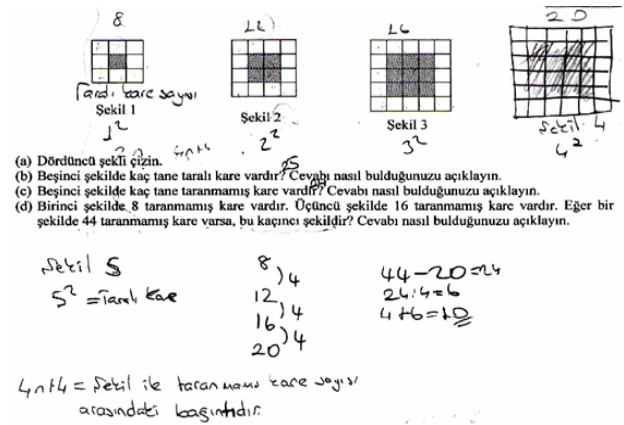 8 12 16 20
Taralı kare sayısı
Şekil 1 Şekil 2 Şekil 3 Şekil 4
1² 2² 3² 4²
4n+4
(a) Dördüncü şekli çizin.
(b) Beşinci şekilde kaç tane taralı kare vardır? Cevabı nasıl bulduğunuzu açıklayın.
25
(c) Beşinci şekilde kaç tane taranmamış kare vardır? Cevabı nasıl bulduğunuzu açıklayın.
(d) Birinci şekilde 8 taranmamış kare vardır. Üçüncü şekilde 16 taranmamış kare vardır. Eğer bir
şekilde 44 taranmamış kare varsa, bu kaçıncı şekildir? Cevabı nasıl bulduğunuzu açıklayın.
Şekil 5
5² = Taralı kare
8
) 4
12
) 4
16
) 4
20
44-20=24
24:4=6
4+6=10
4n+4 = Şekil ile taranmamış kare sayısı
arasındaki bağıntıdır.